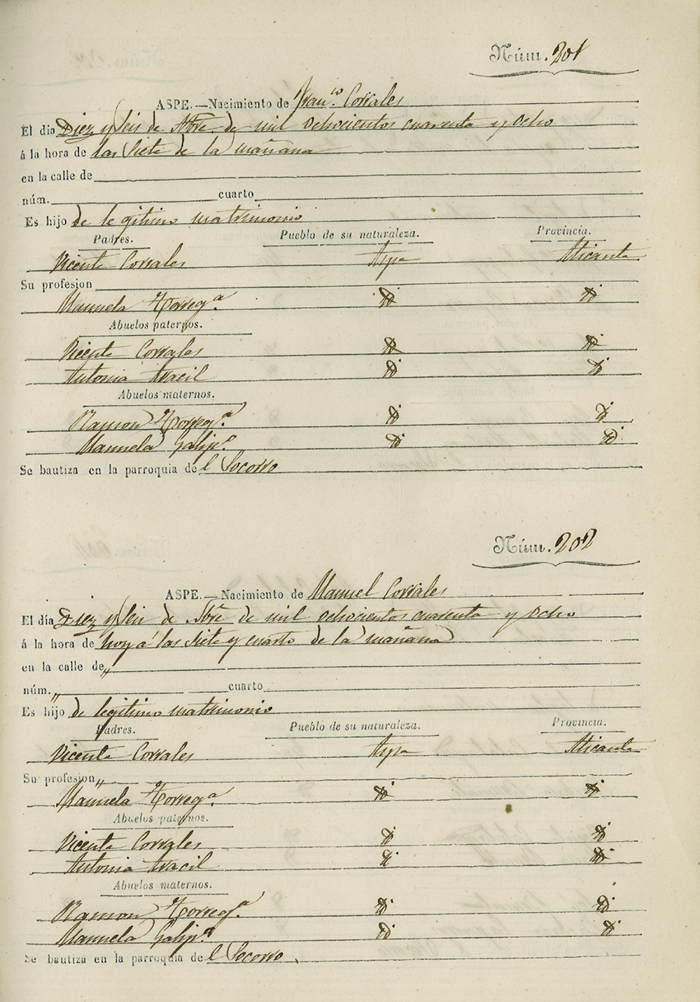 Núm. 201
ASPE.—Nacimiento de Fran.co Corrales
El dia Diez y seis de Nbre de mil ochocientos cuarenta y ocho
á la hora de las siete de la mañana
en la calle de
núm. cuarto
Es hijo de legitimo matrimonio
Padres. Pueblo de su naturaleza. Provincia.
Vicente Corrales Aspe Alicante
Su profesion
Manuela Torreg.a
Abuelos paternos.
Vicente Corrales
Antonia Gracil
Abuelos maternos.
Ramon Torreg.a
Manuela Galip.o
Se bautiza en la parroquia del Socorro
Núm. 202
ASPE.—Nacimiento de Manuel Corrales
El día Diez y seis de Nbre de mil ochocientos cuarenta y ocho
á la hora de hoy á las siete y cuarto de la mañana
en la calle de „
núm. „ cuarto
Es hijo de legitimo matrimonio
Padres. Pueblo de su naturaleza. Provincia.
Vicente Corrales Aspe Alicante
Su profesion „
Manuela Torreg.a
Abuelos paternos.
Vicente Corrales
Antonia Gracil
Abuelos maternos.
Ramon Torreg.a
Manuela Galip.o
Se bautiza en la parroquia del Socorro.